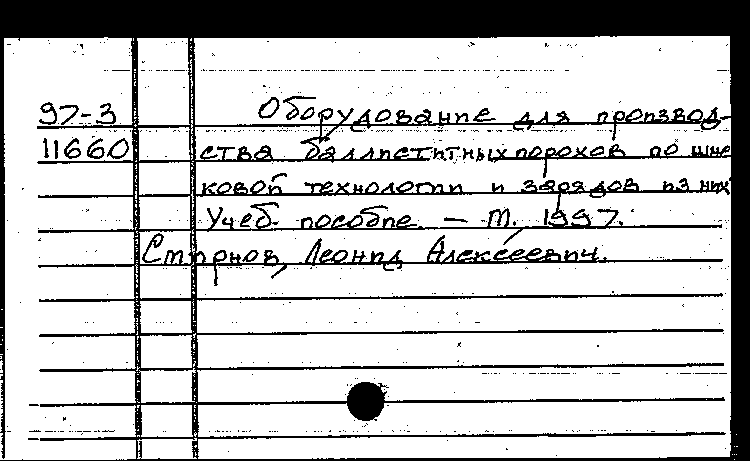 97-3 Оборудование для производ-
11660 ства баллиститных порохов по шне
ковой технологии и зарядов из них
Учеб. пособие. — М. 1997.
Смирнов, Леонид Алексеевич.